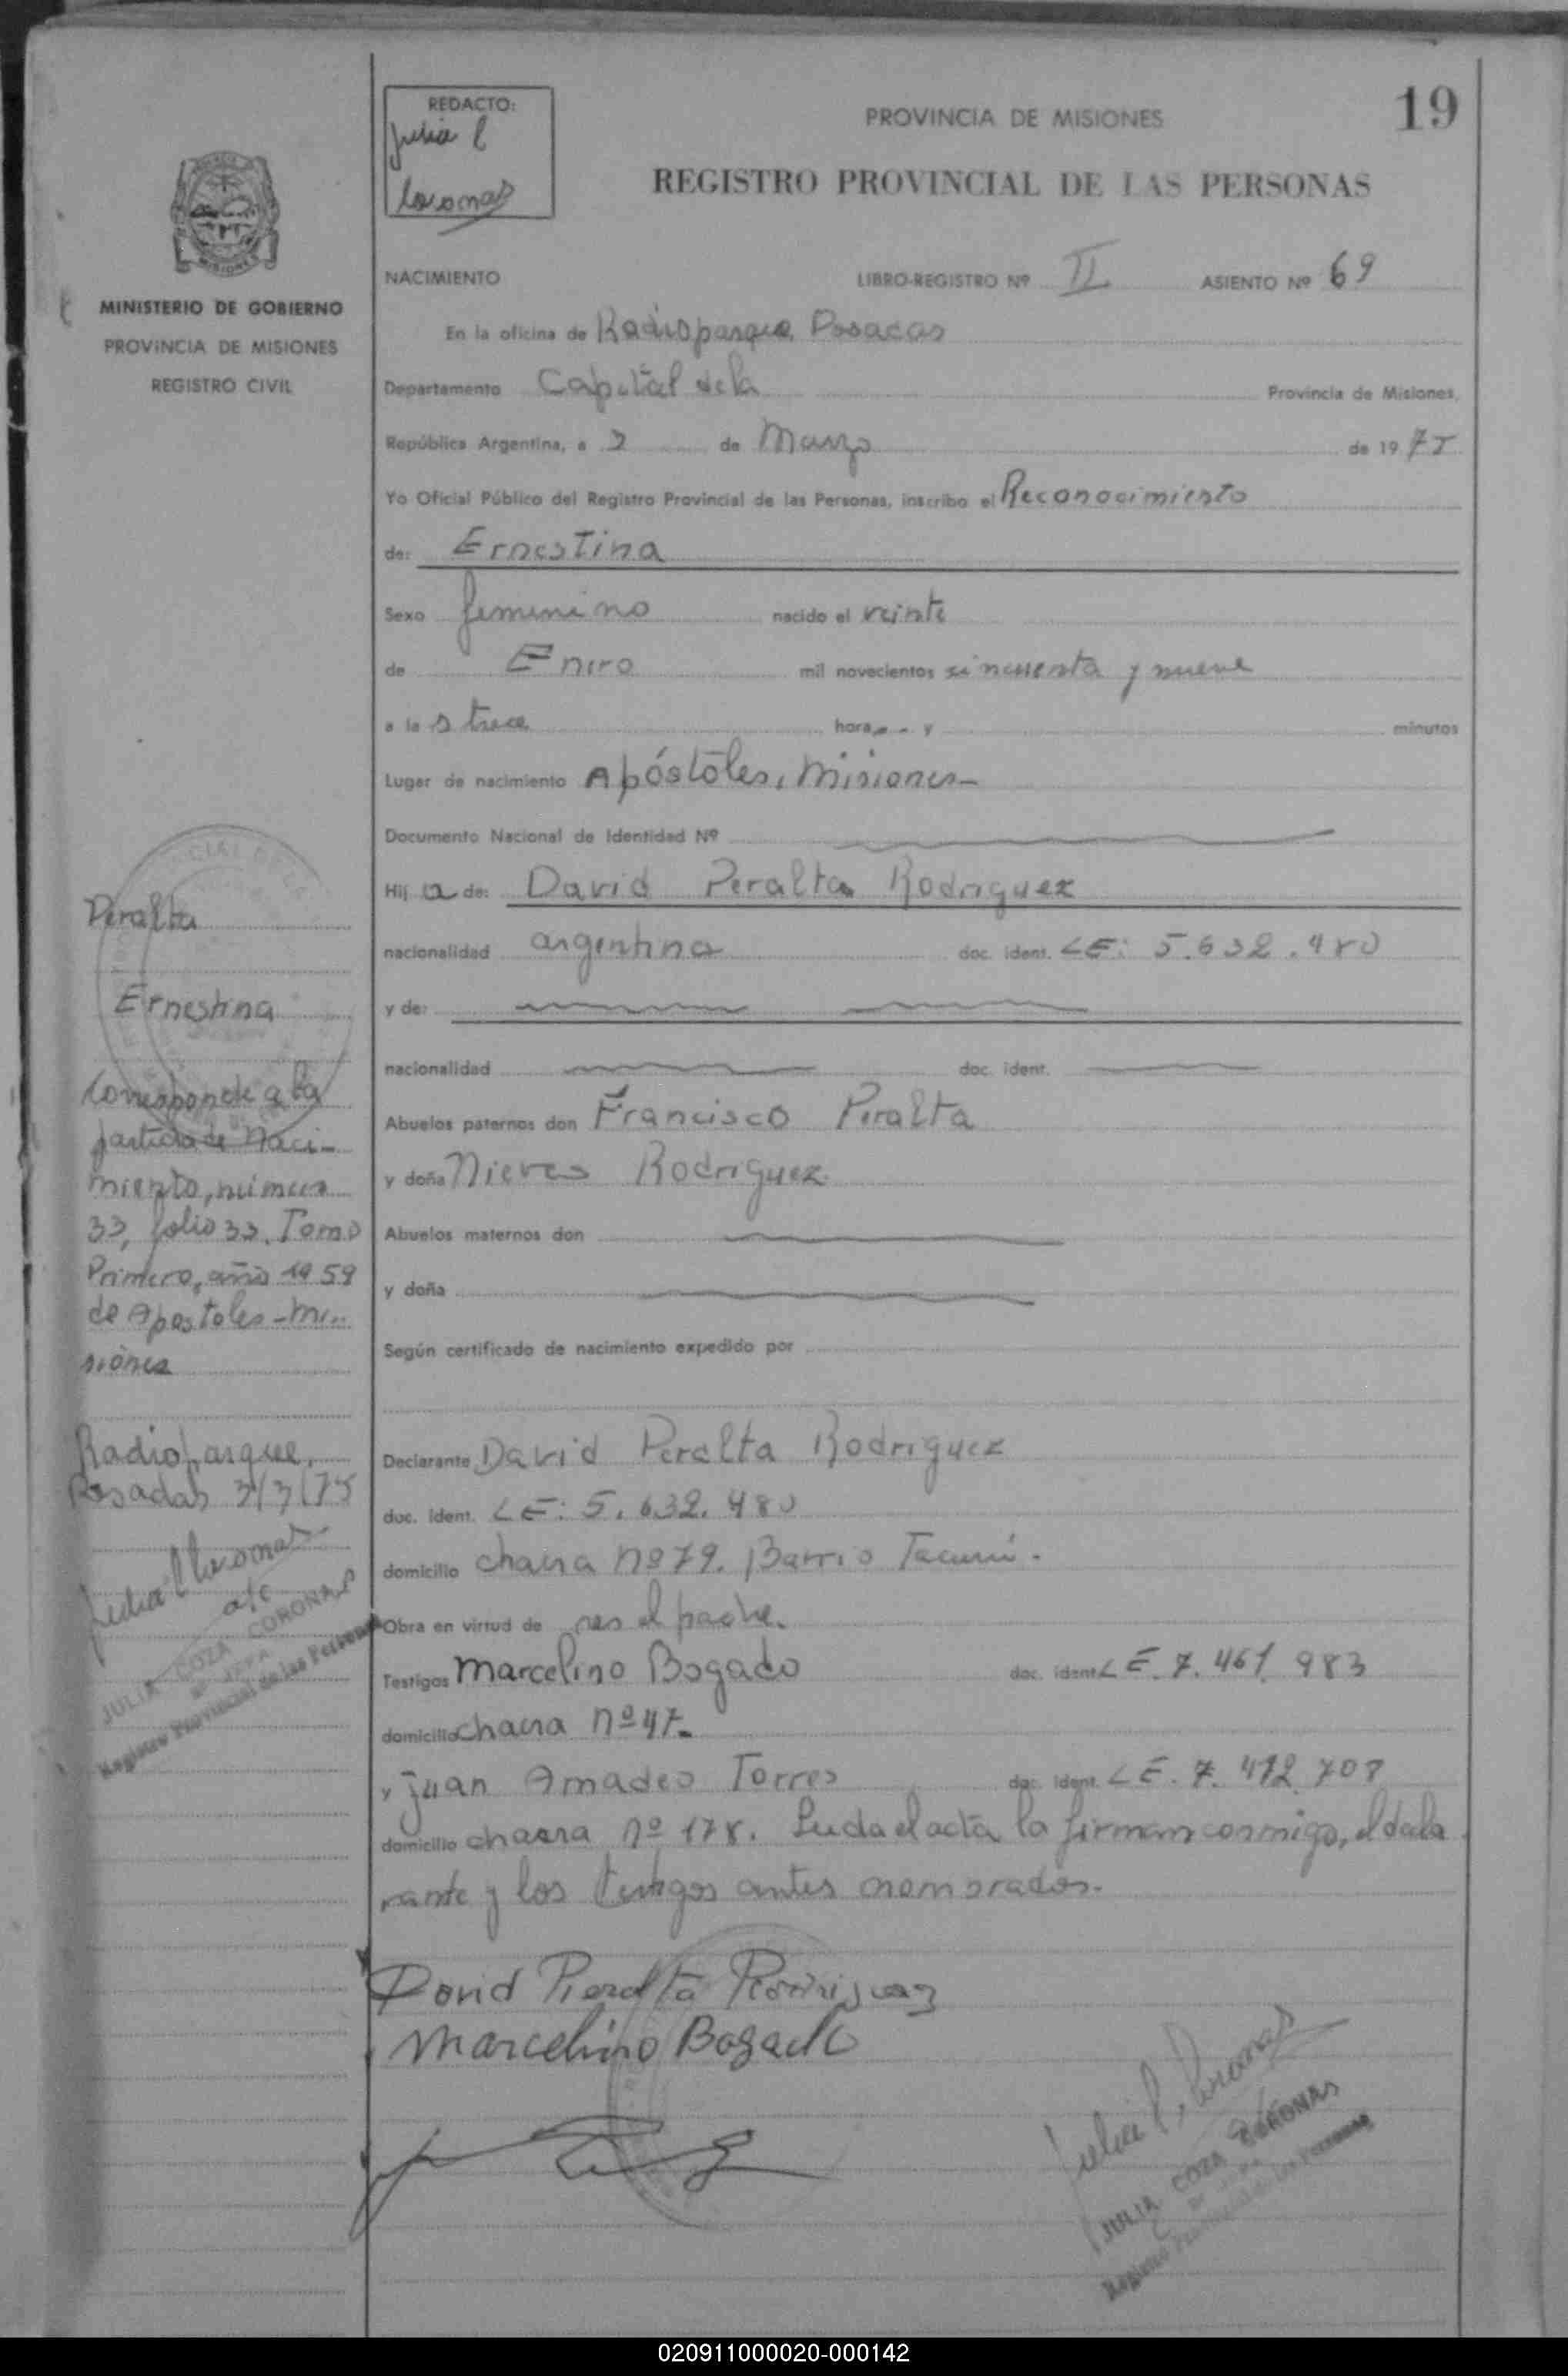 19
REDACTO:
Julia C
Coronas
PROVINCIA DE MISIONES
REGISTRO PROVINCIAL DE LAS PERSONAS
MINISTERIO DE GOBIERNO
PROVINCIA DE MISIONES
REGISTRO CIVIL
NACIMIENTO LIBRO-REGISTRO Nº II ASIENTO Nº 69
En la oficina de Radioparque Posadas
Departamento Capital de la Provincia de Misiones,
República Argentina, a 3 de Marzo de 1975
Yo Oficial Público del Registro Provincial de las Personas, inscribo el Reconocimiento
de: Ernestina
Sexo femenino nacido el veinte
de Enero mil novecientos sincuenta y nueve
a las trece horas y minutos
Lugar de nacimiento Apóstoles, Misiones
Documento Nacional de Identidad Nº
Hija de: David Peralta Rodriguez
nacionalidad argentina doc. ident. LE: 5.632.480
y de:
nacionalidad doc. ident.
Abuelos paternos don Francisco Peralta
y doña Nieves Rodriguez
Abuelos maternos don
y doña
Según certificado de nacimiento expedido por
Declarante David Peralta Rodriguez
doc. ident. LE: 5.632.480
domicilio chacra nº 79. Barrio Tacurú.
Obra en virtud de ser el padre.
Testigos Marcelino Bogado doc. ident. LE. 7.461.983
domicilio chacra nº 47.
y Juan Amadeo Torres doc. ident. LE. 7.472.708
domicilio chacra nº 178. Leida el acta la firman conmigo, el decla
rante y los testigos antes nombrados.
David Peralta Rodriguez
Marcelino Bogado
Julia C. Coronas
JULIA COZA CORONAS
Registro Provincial de las Personas
Peralta
Ernestina
Corresponde a la
partida de Naci-
miento, número
33, folio 33, Tomo
Primero, año 1959
de Apostoles-Mi-
siones
Radioparque,
Posadas 3/3/75
Julia C Coronas
a/c
JULIA COZA CORONAS
Registro Provincial de las Personas
020911000020-000142